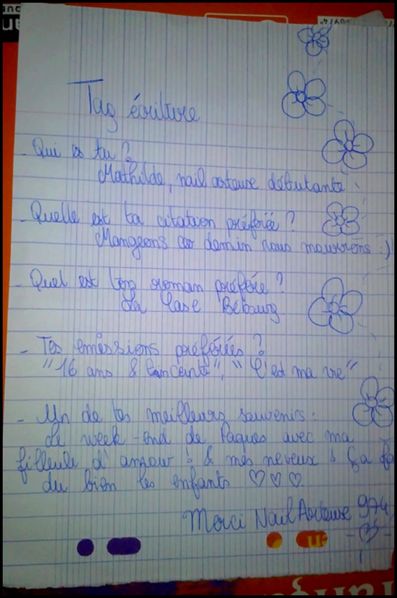 Tag écriture
- Qui es tu ?
Mathilde, nail arteuse débutante.
- Quelle est ta citation préférée ?
Mangeons car demain nous mourrons :)
- Quel est ton roman préféré ?
La Case Bébourg
- Tes émissions préférées ?
"16 ans & Enceinte", "C'est ma vie"
- Un de tes meilleurs souvenirs :
Le week-end de Pâques avec ma
filleule d'amour ! & mes neveux ! Ça
du bien les enfants ♡♡♡
Merci NailArteuse 974
-♡-